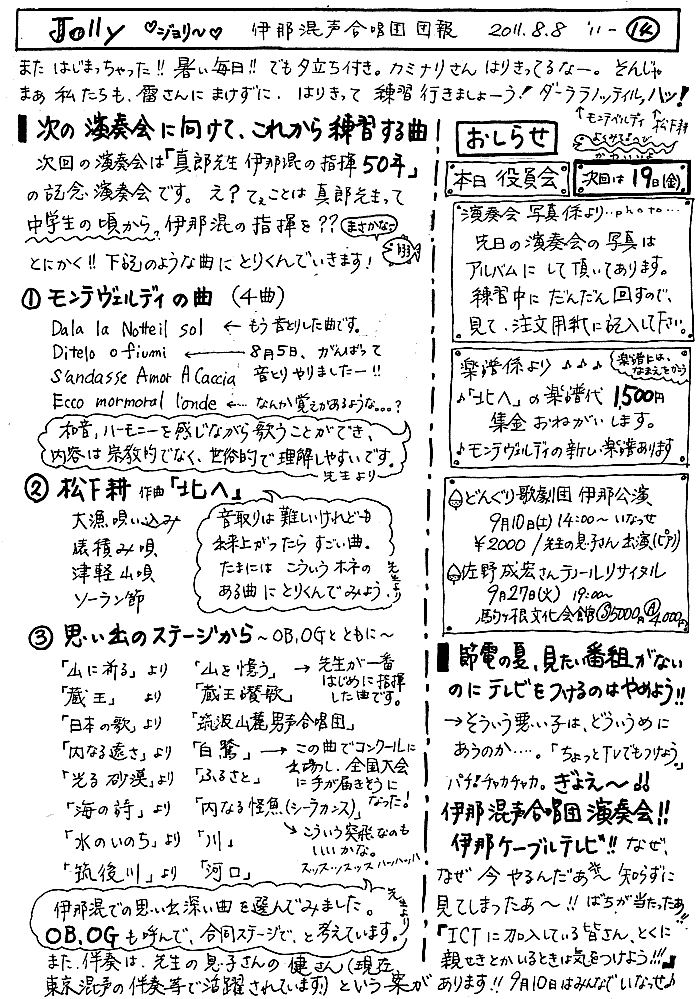 Jolly ♡ジョリ〜♡ 伊那混声合唱団団報 2011.8.8 '11-⑭
また はじまっちゃった!! 暑い毎日!! でも夕立ち付き。カミナリさん はりきってるなー。そんじゃ
まあ 私たちも、雷さんに まけずに、はりきって 練習 行きましょーう! ダーララノッティルッ、ハッ!
↑モンテベルディ ↑松下耕
■次の演奏会に向けて、これから練習する曲
次回の演奏会は「真郎先生 伊那混の指揮50年」
の記念演奏会です。え?てぇことは 真郎先生って
中学生の頃から、伊那混の指揮を??
まさかなっ
とにかく!! 下記のような曲に とりくんでいきます!
① モンテヴェルディの曲 (4曲)
Dala la Notteil sol ← もう音とりした曲です。
Ditelo o fiumi ← 8月5日、がんばって
S'andasse Amor A Caccia 音とりやりましたー!!
Ecco mormoral l'onde ← なんか覚えがあるような…?
和音、ハーモニーを感じながら歌うことができ、
内容は宗教的でなく、世俗的で理解しやすいです。
先生より
② 松下耕 作曲「北へ」
大漁唄い込み
俵積み唄
津軽山唄
ソーラン節
音取りは難しいけれども
出来上がったら すごい曲。
たまには こういう ホネの
ある曲に とりくんでみよう。
先生より
③ 思い出のステージから 〜OB,OGとともに〜
「山に祈る」より 「山を憶う」 → 先生が一番はじめに指揮した曲です。
「蔵王」 より 「蔵王讃歌」
「日本の歌」より 「筑波山麓男声合唱団」
「内なる遠さ」より 「白鷺」 → この曲でコンクールに出場し、全国大会に手が届きそうになった!
「光る砂漠」より 「ふるさと」
「海の詩」より 「内なる怪魚(シーラカンス)」
↘ こういう突飛なのもいいかな。
「水のいのち」より 「川」
スッスッスッスッハッハッハッ
「筑後川」より 「河口」
伊那混での思い出深い曲を選んでみました。
OB,OGも呼んで、合同ステージで、と考えています。
先生より
また、伴奏は、先生の息子さんの 健さん(現在
東京混声の伴奏等で活躍されています!)という案が あります!!
おしらせ
本日 役員会
次回は 19日(金)
演奏会 写真係より…photo…
先日の演奏会の写真は
アルバムに して頂いてあります。
練習中に だんだん回すので、
見て、注文用紙に記入して下さい。
楽譜係より ♪♪♪
楽譜には、なまえをかこう
♪「北へ」の楽譜代 1,500円
集金 おねがいします。
♪モンテヴェルディの新しい楽譜あります
どんぐり歌劇団 伊那公演
9月10日(土)14:00〜 いなっせ
¥2000 / 先生の息子さん出演(ピアノ)
佐野成宏さん テノールリサイタル
9月27日(火) 19:00〜
駒ヶ根文化会館 Ⓢ5000円 Ⓐ4,000円
■節電の夏、見たい番組がない
のに テレビをつけるのはやめよう!!
→そういう悪い子は、どういうめに
あうのか…。「ちょっとTVでもつけよう。」
パチ!チャカチャカ。ぎょえ〜!!
伊那混声合唱団 演奏会!!
伊那ケーブルテレビ!! なぜ、
なぜ 今 やるんだあ〜 知らずに
見てしまったあ〜!! ばちが当たったあ!!
「ICTに加入している皆さん、とくに
親せきとかいるときは気をつけよう!!!」
9月10日はみんなでいなっせ♪